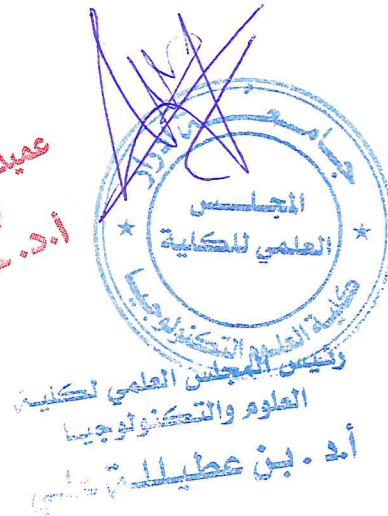 عميد
أ.د.
جامعة أدرار
المجلس
العلمي للكلية
كلية العلوم والتكنولوجيا
رئيس المجلس العلمي لكلية
العلوم والتكنولوجيا
أ.د. بن عطيللة علي